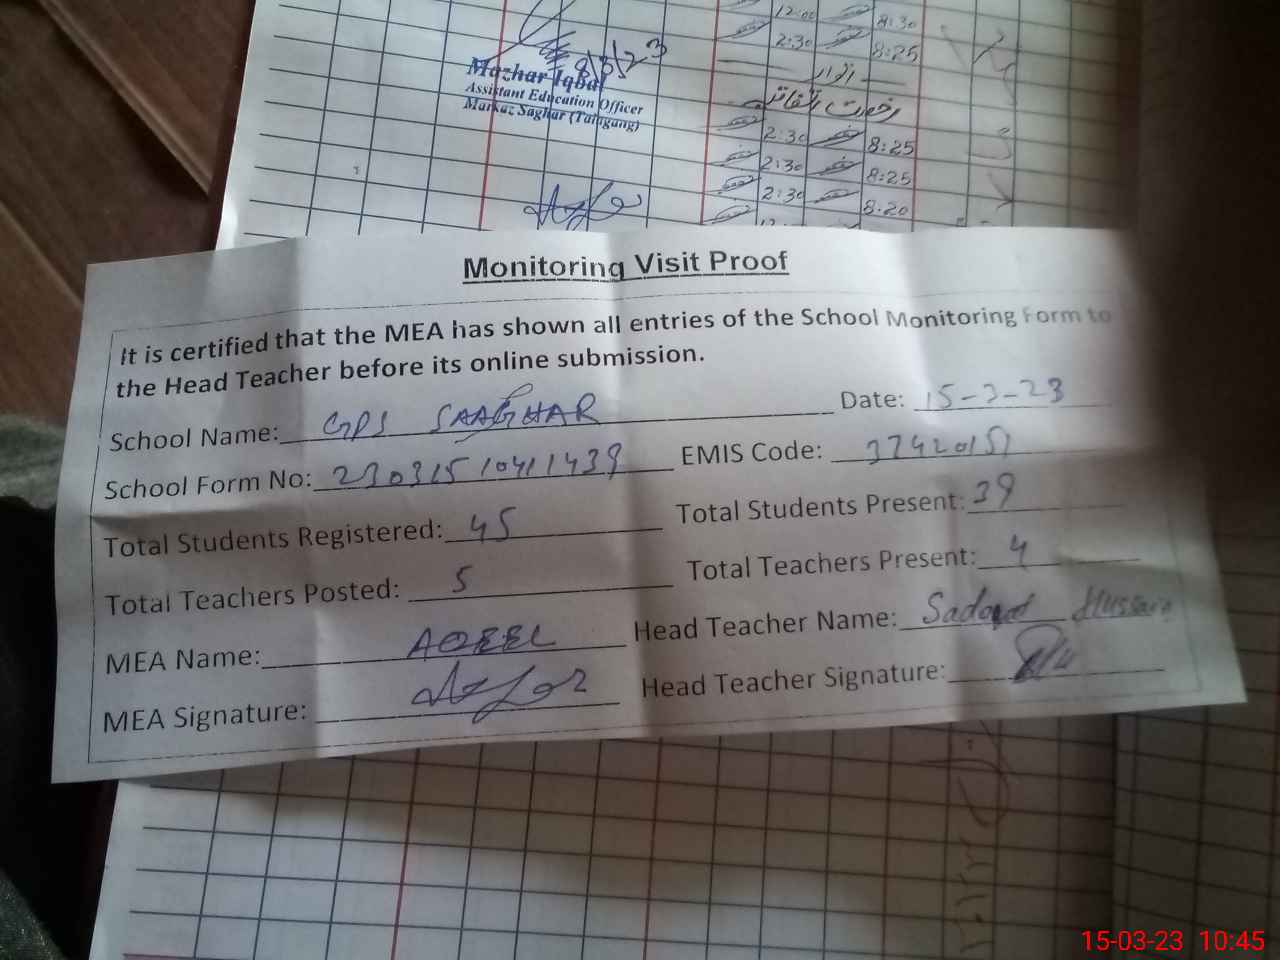 12:00 8:30
2:30 8:25
اتوار
8/3/23
Mazhar Iqbal
Assistant Education Officer
Markaz Saghar (Talagang)
رخصت اتفاقیہ
2:30 8:25
2:30 8:25
2:30 8:20
Monitoring Visit Proof
It is certified that the MEA has shown all entries of the School Monitoring Form to
the Head Teacher before its online submission.
School Name: GPS SAAGHAR Date: 15-3-23
School Form No: 23031510411439 EMIS Code: 37420151
Total Students Registered: 45 Total Students Present: 39
Total Teachers Posted: 5 Total Teachers Present: 4
MEA Name: AQEEL Head Teacher Name: Sadaqat Hussain
MEA Signature: Head Teacher Signature:
15-03-23 10:45